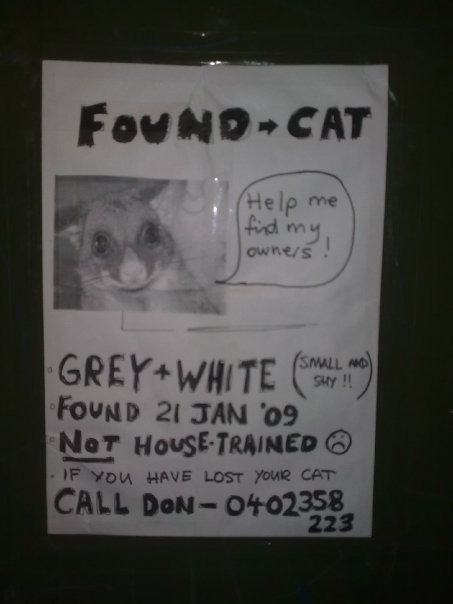 FOUND → CAT
Help me
find my
owners!
GREY + WHITE (SMALL AND
SHY !!)
FOUND 21 JAN '09
NOT HOUSE-TRAINED ☹
IF YOU HAVE LOST YOUR CAT
CALL DON - 0402358
223